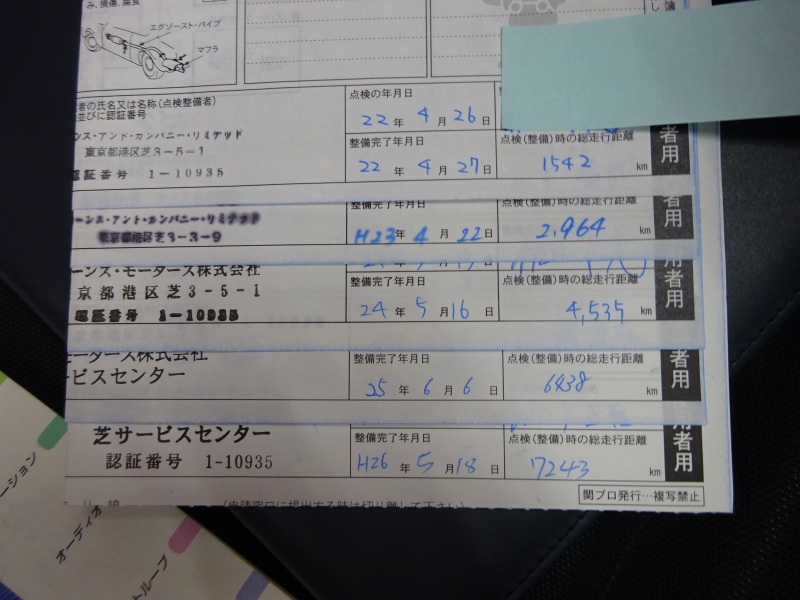 み、損傷、腐食
エグゾースト・パイプ
マフラ
者の氏名又は名称(点検整備者)
並びに認証番号
点検の年月日
22年 4月26日
ンス・アンド・カンパニー・リミテッド
東京都港区芝3-5-1
認証番号 1-10935
整備完了年月日
22年 4月27日
点検(整備)時の総走行距離
1542 km
者用
ーンス・アンド・カンパニー・リミテッド
東京都港区芝3-3-9
H23年 4月22日
点検(整備)時の総走行距離
2,964 km
者用
ーンズ・モータース株式会社
京都港区芝3-5-1
認証番号 1-10935
整備完了年月日
24年 5月16日
点検(整備)時の総走行距離
4,535 km
者用
モータース株式会社
ービスセンター
整備完了年月日
25年 6月6日
点検(整備)時の総走行距離
6438 km
者用
芝サービスセンター
認証番号 1-10935
整備完了年月日
H26年 5月18日
点検(整備)時の総走行距離
7243 km
用者用
(申請窓口に提出する時は切り離して下さい)
関ブロ発行…複写禁止
ーション
オーディオ
トループ